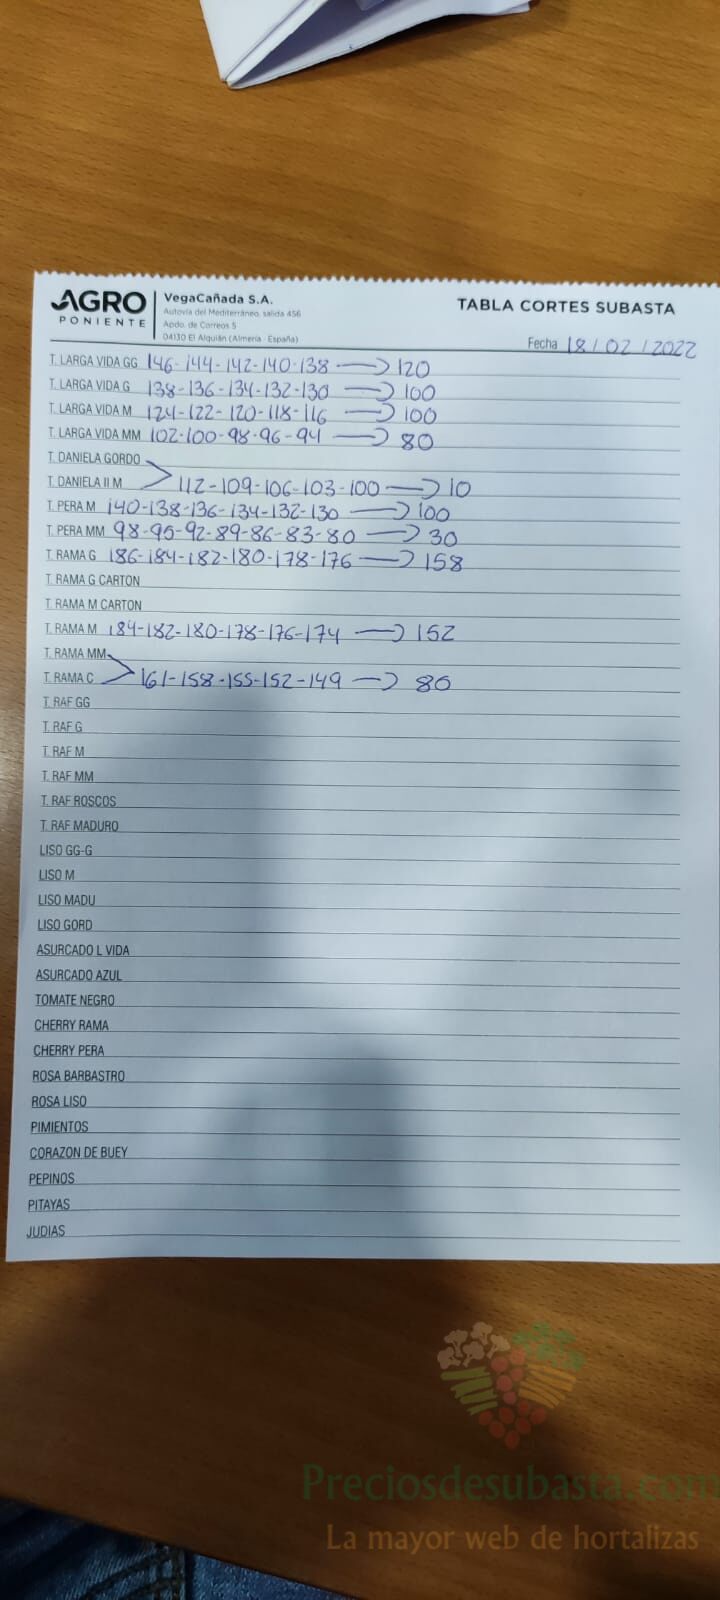 AGRO
PONIENTE
VegaCañada S.A.
Autovía del Mediterráneo, salida 456
Apdo. de Correos 5
04130 El Alquián (Almería - España)
TABLA CORTES SUBASTA
Fecha 18 / 02 / 2022
T. LARGA VIDA GG 146-144-142-140-138 → 120
T. LARGA VIDA G 138-136-134-132-130 → 100
T. LARGA VIDA M 124-122-120-118-116 → 100
T. LARGA VIDA MM 102-100-98-96-94 → 80
T. DANIELA GORDO
T. DANIELA II M 112-109-106-103-100 → 10
T. PERA M 140-138-136-134-132-130 → 100
T. PERA MM 98-95-92-89-86-83-80 → 30
T. RAMA G 186-184-182-180-178-176 → 158
T. RAMA G CARTON
T. RAMA M CARTON
T. RAMA M 184-182-180-178-176-174 → 152
T. RAMA MM
T. RAMA C 161-158-155-152-149 → 80
T. RAF GG
T. RAF G
T. RAF M
T. RAF MM
T. RAF ROSCOS
T. RAF MADURO
LISO GG-G
LISO M
LISO MADU
LISO GORD
ASURCADO L VIDA
ASURCADO AZUL
TOMATE NEGRO
CHERRY RAMA
CHERRY PERA
ROSA BARBASTRO
ROSA LISO
PIMIENTOS
CORAZON DE BUEY
PEPINOS
PITAYAS
JUDIAS
Preciosdesubasta.com
La mayor web de hortalizas